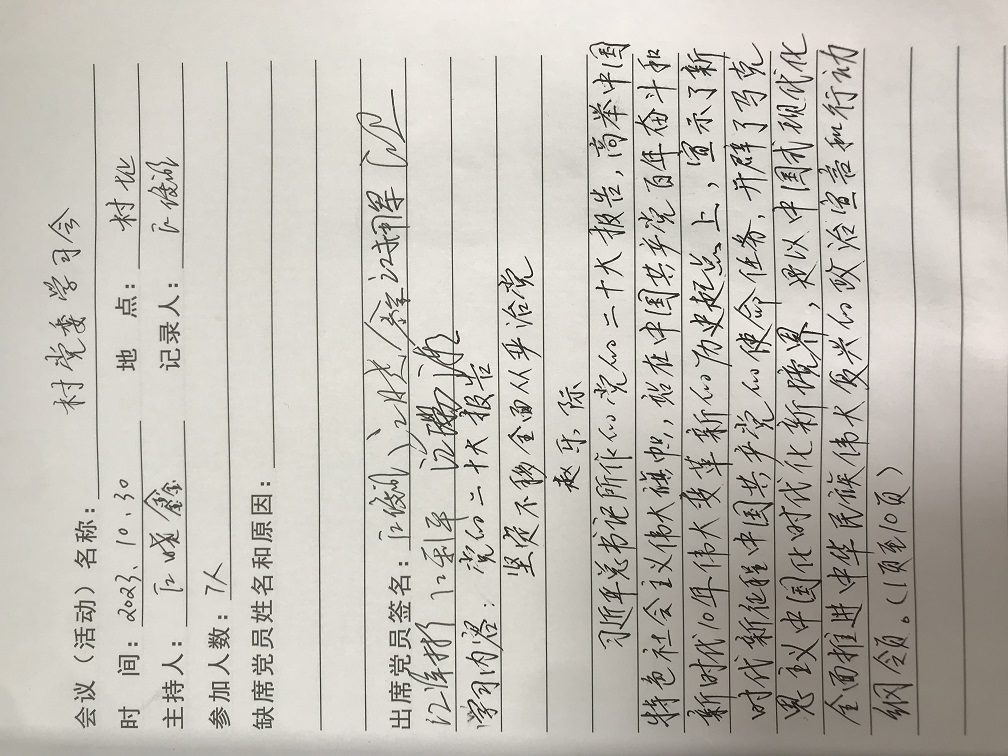 会议（活动）名称：村党委学习会
时 间：2023、10、30 地 点：村址
主持人：江晓鑫 记录人：江俊湖
参加人数：7人
缺席党员姓名和原因：
出席党员签名：江俊湖
学习内容：党的二十大报告
坚定不移全面从严治党
赵乐际
习近平总书记所作的党的二十大报告，高举中国
特色社会主义伟大旗帜，站在中国共产党百年奋斗和
新时代10年伟大变革新的历史起点上，宣示了新
时代新征程中国共产党的使命任务，开辟了马克
思主义中国化时代化新境界，是以中国式现代化
全面推进中华民族伟大复兴的政治宣言和行动
纲领。（1页至10页）